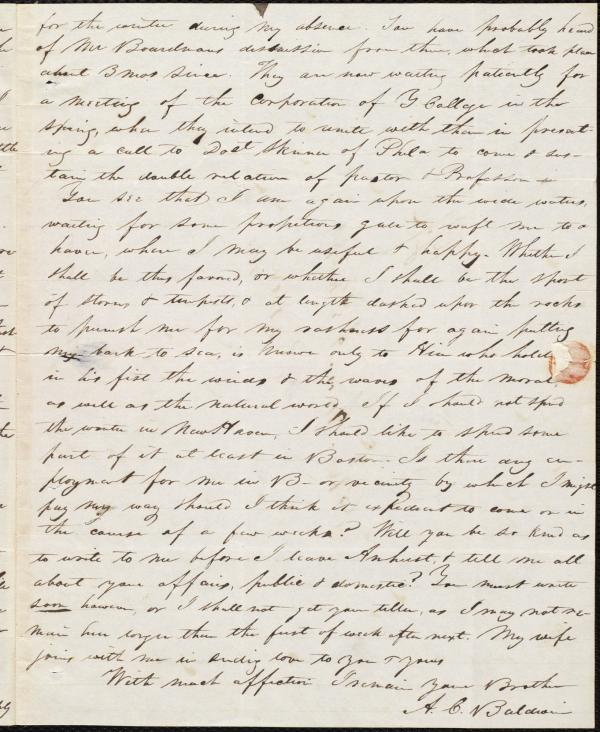 for the winter during my absence. You have probably heard
of Mr Boardmans dismission from them, which took place
about 3 mos since. They are now waiting patiently for
a meeting of the corporation of Y College in the
spring, when they intend to unite with them in present-
ing a call to Doct Skinner of Phila to come & sus-
tain the double relation of pastor & Professor
You see that I am again upon the wide waters,
waiting for some propitious gale to waft me to a
haven, where I may be useful & happy. Whether I
shall be thus favored, or whether I shall be the sport
of storms & tempests, & at length dashed upon the rocks
to punish me for my rashness for again putting
my bark to sea, is known only to Him who holds
in his fist the winds & the waves of the moral
as well as the natural world. If I should not spend
the winter in New Haven, I should like to spend some
part of it at least in Boston. Is there any em-
ployment for me in B- or vicinity by which I might
pay my way should I think it expedient to come on in
the course of a few weeks? Will you be so kind as
to write to me before I leave Amherst, & tell me all
about your affairs, public & domestic? You must write
soon however, or I shall not get your letter, as I may not re-
main here longer than the first of week after next. My wife
joins with me in sending love to you & yours
With much affection I remain your Brother
A. C. Baldwin